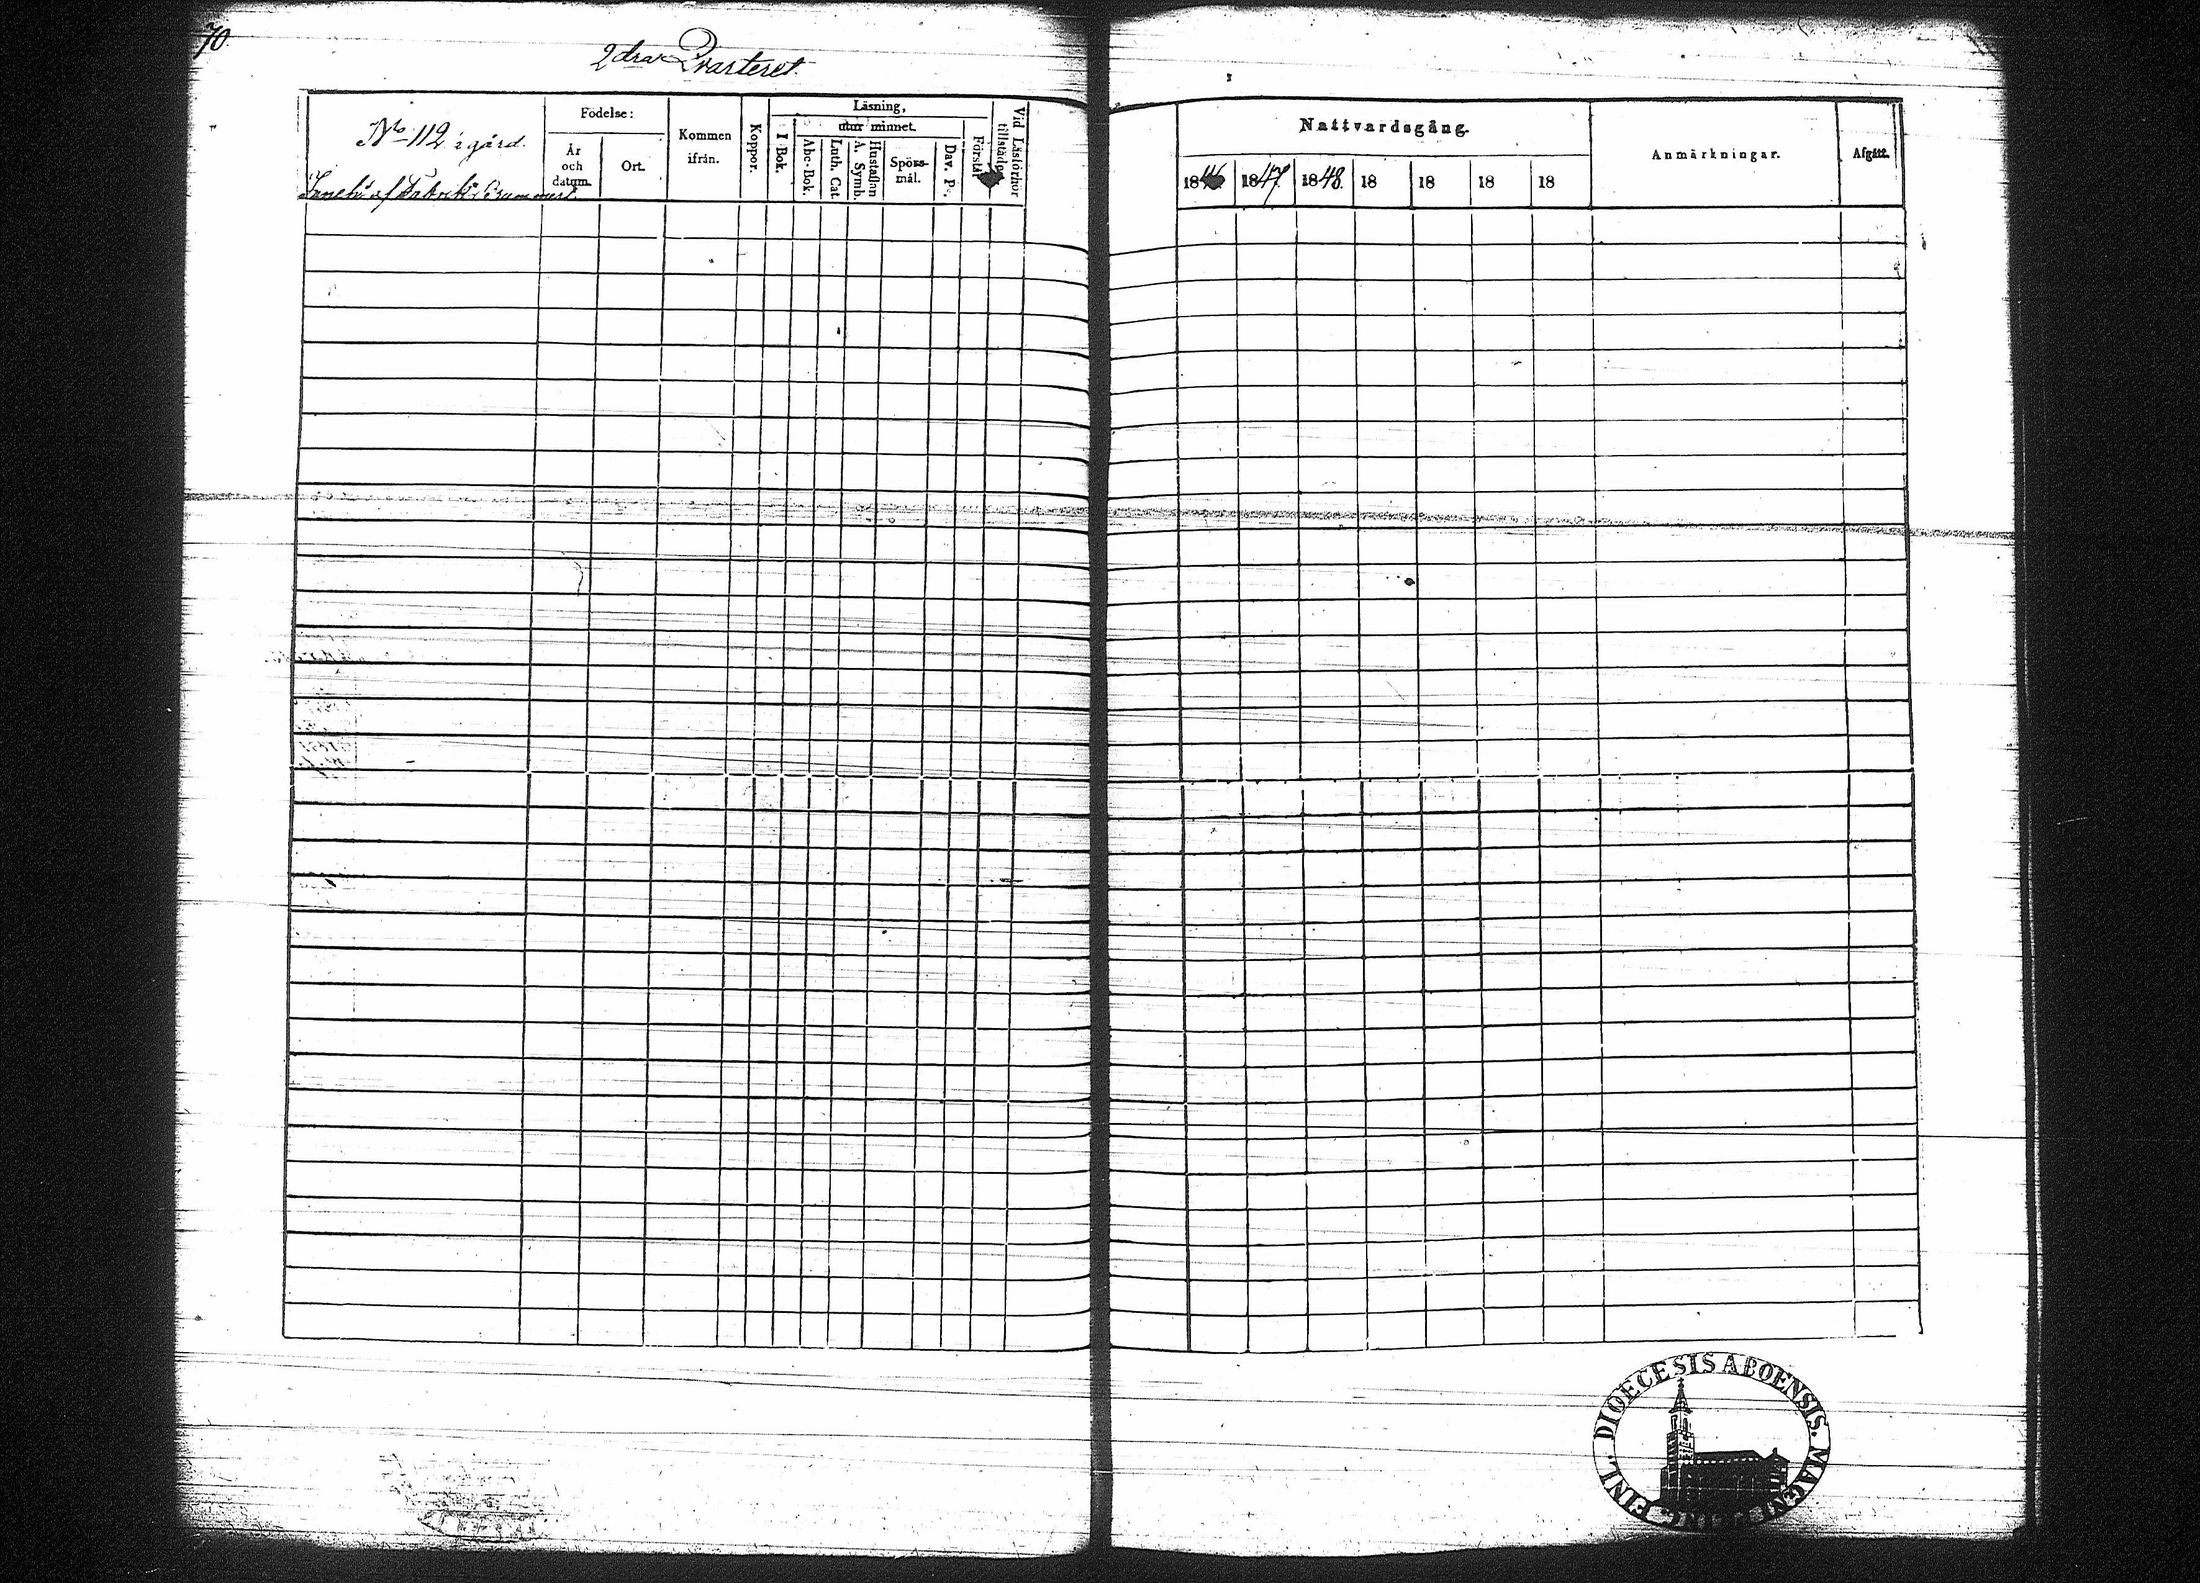 70.
2dra Qvarteret.
No 112 i gård.
af Fabrik
Födelse:
År och datum.
Ort.
Kommen ifrån.
Koppor.
Läsning,
utur minnet.
I Bok.
Abc-Bok.
Luth. Cat.
Hustaflan
A. Symb.
Spörs-
mål.
Dav. Ps.
Förstår
Vid Läsförhör
tillstädes
Nattvardsgång.
1846 1847. 1848. 18 18 18 18
Anmärkningar.
Afgått.
DIOECESIS ABOENSIS. MAGNI FINL.